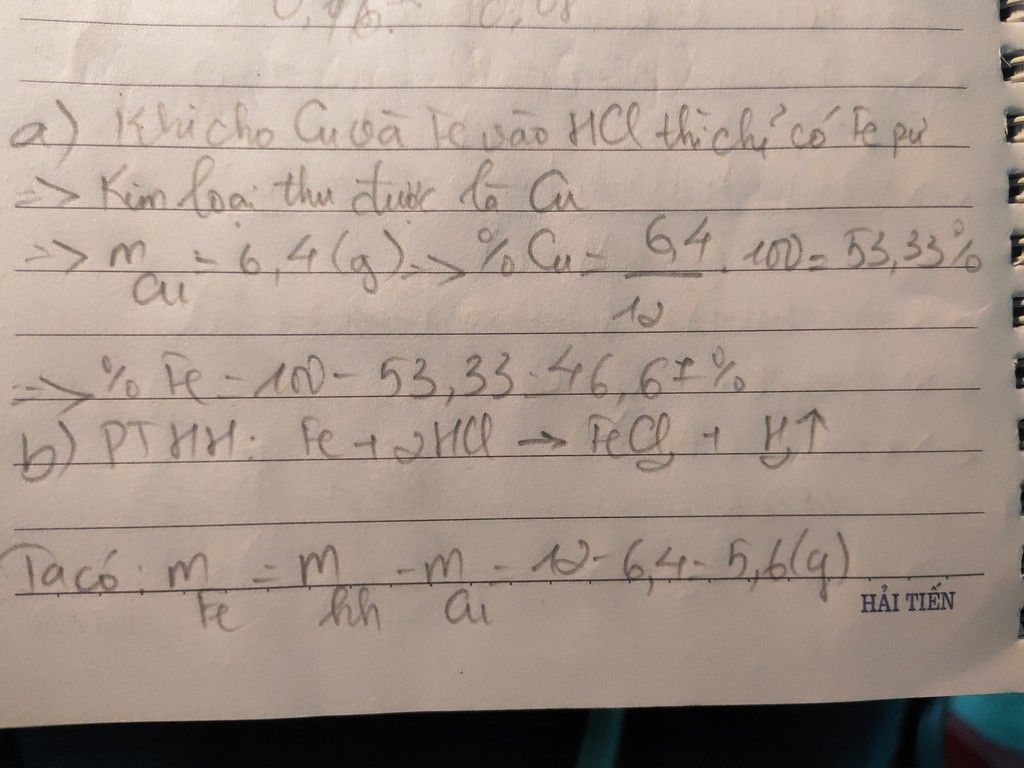 a) Khi cho Cu và Fe vào HCl thì chỉ có Fe pư
=> Kim loại thu được là Cu
=> m Cu = 6,4 (g) => % Cu = 6,4 / 12 . 100 = 53,33%
=> % Fe = 100 - 53,33 = 46,67%
b) PTHH: Fe + 2HCl → FeCl₂ + H₂↑
Ta có: m Fe = m hh - m Cu = 12 - 6,4 = 5,6 (g)
HẢI TIẾN